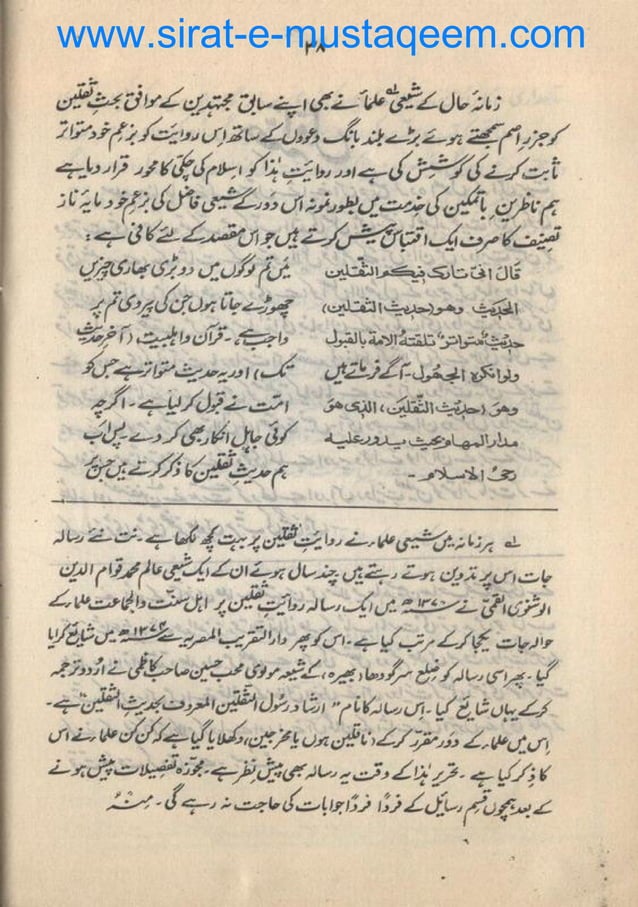 www.sirat-e-mustaqeem.com
۳۸
زمانۂ حال کے شیعی علماء نے بھی اپنے سابق مجتہدین کے موافق بحث ثقلین
کو جزرِ اصم سمجھتے ہوئے بڑے بلند بانگ دعووں کے ساتھ اس روایت کو بزعمِ خود متواتر
ثابت کرنے کی کوشش کی ہے اور روایتِ ہٰذا کو اسلام کی چکی کا محور قرار دیا ہے
ہم ناظرین باتمکین کی خدمت میں بطور نمونہ اس دَور کے شیعی فاضل کی بزعم خود مایۂ ناز
تصنیف کا صرف ایک اقتباس پیش کرتے ہیں جو اس مقصد کے لئے کافی ہے :
قال انی تارک فیکم الثقلین
الحدیث وھو (حدیث الثقلین)
حدیث متواتر تلقتہ الامۃ بالقبول
ولو انکرہ الجھول۔ آگے فرماتے ہیں
وھو (حدیث الثقلین) الذی ھو
مدار المھام بحیث یدور علیہ
رحی الاسلام ۔
میں تم لوگوں میں دو بڑی بھاری چیزیں
چھوڑے جاتا ہوں جن کی پیروی تم پر
واجب ہے۔ قرآن و اہلبیت (آخر حدیث
تک) اور یہ حدیث متواتر ہے جس کو
امّت نے قبول کر لیا ہے ۔ اگرچہ
کوئی جاہل انکار بھی کر دے ۔ پس اب
ہم حدیثِ ثقلین کا ذکر کرتے ہیں جس پر
لہ ہر زمانہ میں شیعی علماء نے روایتِ ثقلین پر بہت کچھ لکھا ہے ۔ نت نئے رسالہ
جات اس پر تدوین ہوتے رہتے ہیں چند سال ہوئے ان کے ایک شیعی عالم محمد قوام الدین
الوشنوی القمی نے ۱۳۷۰ھ میں ایک رسالہ روایتِ ثقلین پر اہل سنّت والجماعت علماء کے
حوالہ جات یکجا کر کے مرتب کیا ہے ۔ اس کو پھر دار التقریب المصریہ سے ۱۳۷۴ھ میں شایع کرایا
گیا ۔ پھر اسی رسالہ کو ضلع سرگودھا (بھیرہ) کے شیعہ مولوی محب حسین صاحب کاظمی نے اُردو ترجمہ
کر کے یہاں شایع کیا ۔ اس رسالہ کا نام "ارشاد رسول الثقلین المعروف بحدیث الثقلین" ہے ۔
اس میں علماء کے دَور مقرّر کر کے (ناقلین ہوں یا مخرجین) دکھلایا گیا ہے کہ کن کن علماء نے اس
کا ذکر کیا ہے ۔ تحریر ہٰذا کے وقت یہ رسالہ بھی پیش نظر ہے ۔ مجوّزہ تفصیلات پیش ہونے
کے بعد ہمچوں قسم رسائل کے فرداً فرداً جوابات کی حاجت نہ رہے گی ۔ منہ